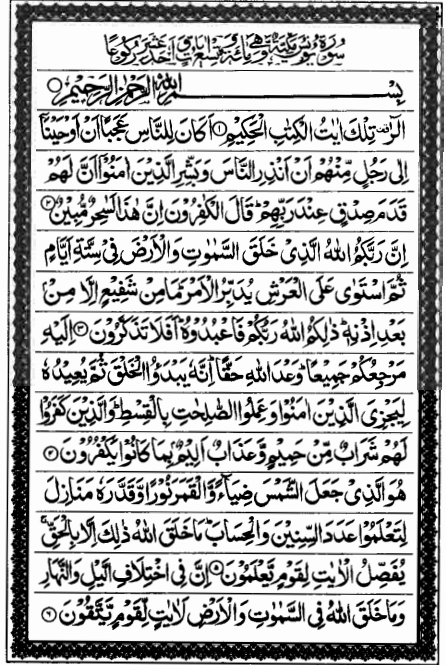 سُوْرَةُ يُوْنُسَ مَكِّيَّةٌ وَّهِيَ مِائَةٌ وَّتِسْعُ اٰيَاتٍ وَّاَحَدَ عَشَرَ رُكُوْعًا
بِسْمِ اللهِ الرَّحْمٰنِ الرَّحِيْمِ
الٓرٰ تِلْكَ اٰيٰتُ الْكِتٰبِ الْحَكِيْمِ ۝۱ اَكَانَ لِلنَّاسِ عَجَبًا اَنْ اَوْحَيْنَآ
اِلٰى رَجُلٍ مِّنْهُمْ اَنْ اَنْذِرِ النَّاسَ وَبَشِّرِ الَّذِيْنَ اٰمَنُوْٓا اَنَّ لَهُمْ
قَدَمَ صِدْقٍ عِنْدَ رَبِّهِمْ ؕ قَالَ الْكٰفِرُوْنَ اِنَّ هٰذَا لَسٰحِرٌ مُّبِيْنٌ ۝۲
اِنَّ رَبَّكُمُ اللهُ الَّذِيْ خَلَقَ السَّمٰوٰتِ وَالْاَرْضَ فِيْ سِتَّةِ اَيَّامٍ
ثُمَّ اسْتَوٰى عَلَى الْعَرْشِ يُدَبِّرُ الْاَمْرَ ؕ مَا مِنْ شَفِيْعٍ اِلَّا مِنْۢ
بَعْدِ اِذْنِهٖ ؕ ذٰلِكُمُ اللهُ رَبُّكُمْ فَاعْبُدُوْهُ ؕ اَفَلَا تَذَكَّرُوْنَ ۝۳ اِلَيْهِ
مَرْجِعُكُمْ جَمِيْعًا ؕ وَعْدَ اللهِ حَقًّا ؕ اِنَّهٗ يَبْدَؤُا الْخَلْقَ ثُمَّ يُعِيْدُهٗ
لِيَجْزِيَ الَّذِيْنَ اٰمَنُوْا وَعَمِلُوا الصّٰلِحٰتِ بِالْقِسْطِ ؕ وَالَّذِيْنَ كَفَرُوْا
لَهُمْ شَرَابٌ مِّنْ حَمِيْمٍ وَّعَذَابٌ اَلِيْمٌۢ بِمَا كَانُوْا يَكْفُرُوْنَ ۝۴
هُوَ الَّذِيْ جَعَلَ الشَّمْسَ ضِيَآءً وَّالْقَمَرَ نُوْرًا وَّقَدَّرَهٗ مَنَازِلَ
لِتَعْلَمُوْا عَدَدَ السِّنِيْنَ وَالْحِسَابَ ؕ مَا خَلَقَ اللهُ ذٰلِكَ اِلَّا بِالْحَقِّ ۚ
يُفَصِّلُ الْاٰيٰتِ لِقَوْمٍ يَّعْلَمُوْنَ ۝۵ اِنَّ فِي اخْتِلَافِ الَّيْلِ وَالنَّهَارِ
وَمَا خَلَقَ اللهُ فِي السَّمٰوٰتِ وَالْاَرْضِ لَاٰيٰتٍ لِّقَوْمٍ يَّتَّقُوْنَ ۝۶